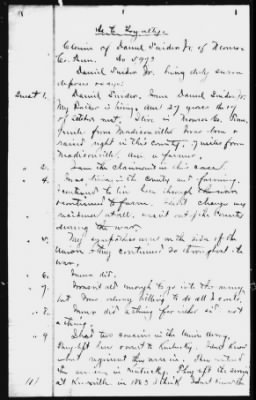 Claim of Daniel Snider Jr. of Monroe
Co. Tenn. No 5973
Daniel Snider Jr. being duly sworn
deposes & says:
Quest 1. Daniel Snider, Jr.
My Father is living, am 27 years the 17
of October next, I live in Monroe Co. Tenn.
miles from Madisonville. Was born &
raised right in this county, 7 miles from
Madisonville. Am a farmer.
" 2. I am the claimant in this case.
" 4. Was living in the county and farming.
I continued to live here through the war
continued to farm. I didn't change my
residence at all, wasn't out of the County
during the war.
" 5. My sympathies were on the side of the
Union & they continued so throughout the
war.
" 6. Never did.
" 7. Wasn't old enough to go into the army,
but was always willing to do all I could.
" 8. Never did a thing for either side not
a thing.
" 9. I had two cousins in the Union Army.
They left here & went to Kentucky. I don't know
what regiment they were in. They entered
the service in Kentucky. They left the service
at Knoxville in 1863 I think. I don't know the